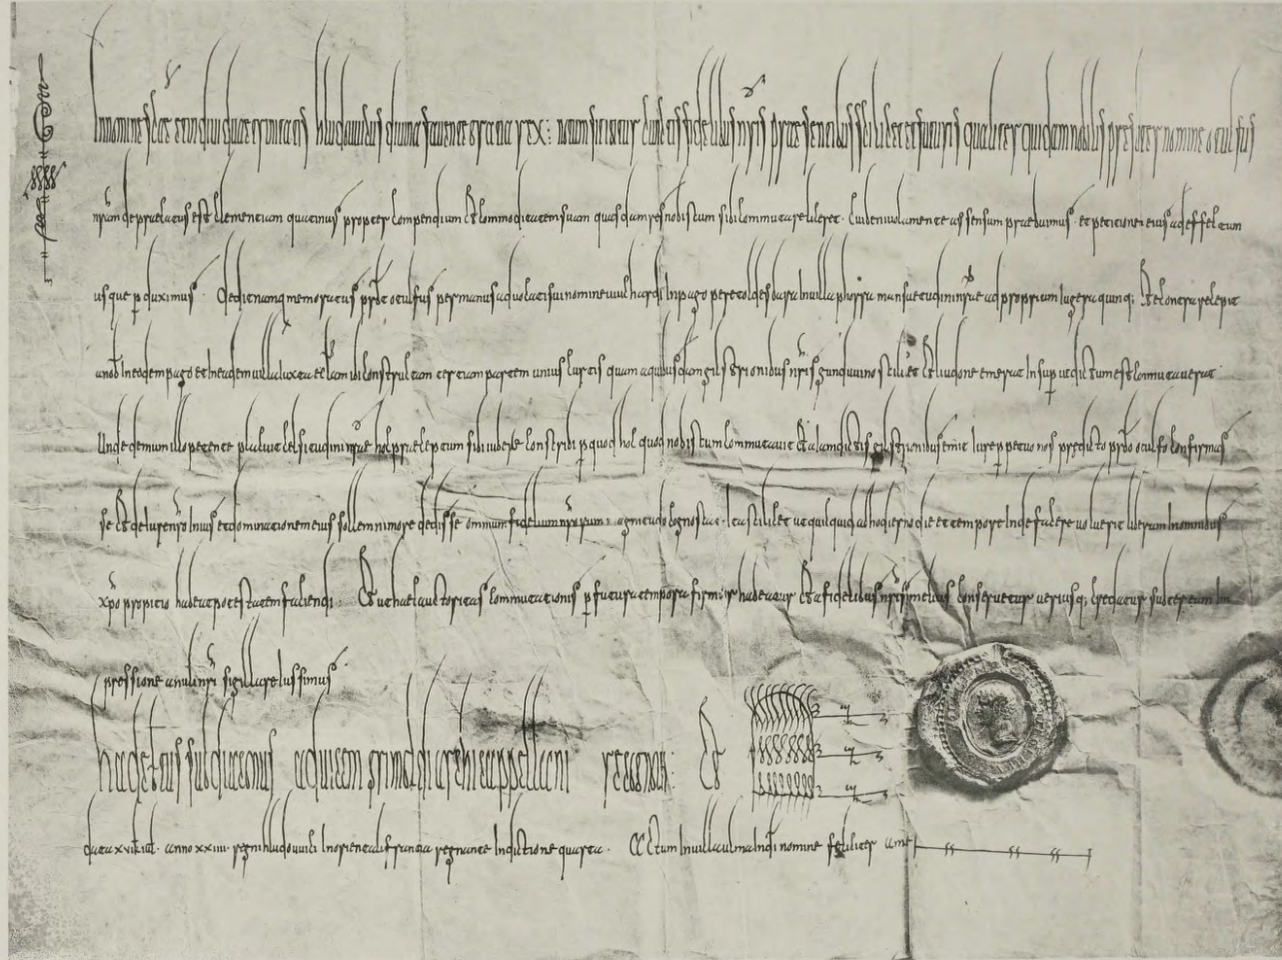 In nomine scae et individuae trinitatis hludouuicus divina favente gratia rex. notum sit igitur cunctis fidelibus nris praesentibus scilicet et futuris qualiter quidam nobilis presbiter nomine otulfus
nram deprecatus est clementiam quatinus propter compendium et commoditatem suam quasdam res nobiscum sibi commutare liceret. Cui benivola mente assensum praebuimus. et petitioni eius ad effectum
usque pduximus. Dedit namq memoratus prbt otulfus per manus advocati sui nomine uuichardi in pago peretoldesbara in villa phorra mansuetudini nrae ad proprium iugera quinq; Et e contra recepit
a nob in eodem pago et in eadem villa iuxta ecclam ibi constructam tertiam partem unius curtis quam a quibusdam gilstrionibus nris gunduuino scilicet et liudone emerat insup ut dictum est commutaverat.
Unde demum illo petente placuit celsitudini nrae hoc praeceptum sibi iubere conscribi p quod hoc quod nobiscum commutavit et a iam dictis gilstrionibus emit iure ppetuo nos predicto prbo otulfo confirmas
se et de iure nro in ius et dominationem eius sollemni more dedisse omnium fidelium nrorum magnitudo cognoscat. ita scilicet ut quicquid ab hodierno die et tempore inde facere voluerit liberam in omnibus
xpo propitio habeat potestatem faciendi. Et ut haec auctoritas commutationis p futura tempora firmior habeatur et a fidelibus nris melius conservetur veriusq; credatur subter eam im
pressione anuli nri sigillare iussimus
subdiaconus advicem grimaldi archicappellani recognovi et
data xvii anno xxiiii regni hludouuici in orientali francia regnante indictione quarta. Actum in villa ulma in di nomine feliciter amen